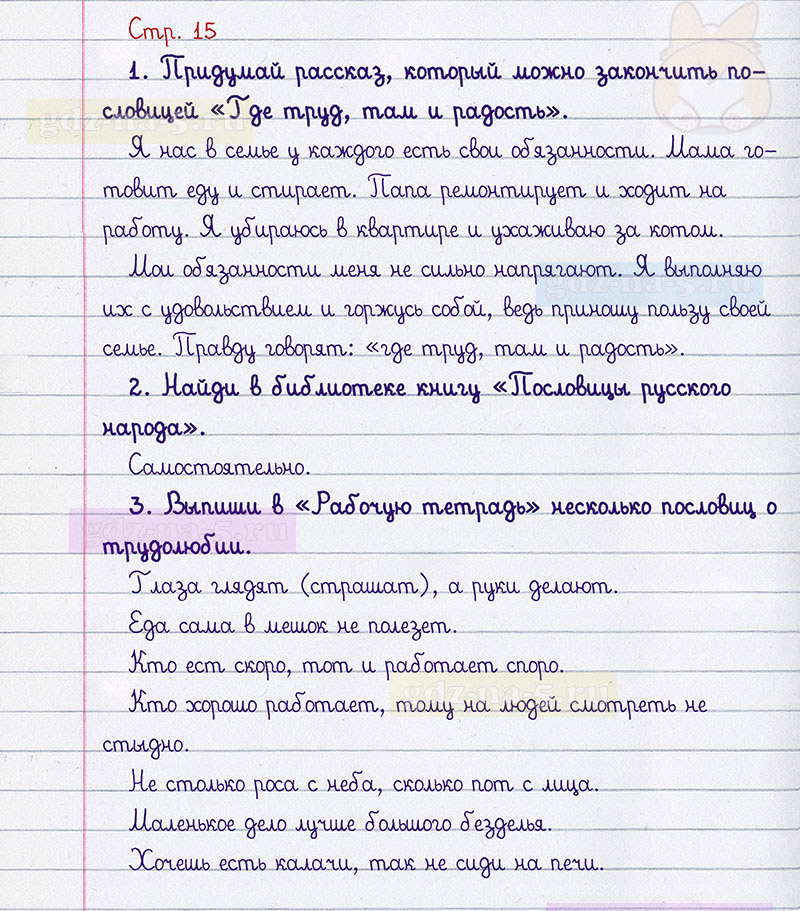 Стр. 15
1. Придумай рассказ, который можно закончить по-
словицей «Где труд, там и радость».
gdz-na-5.ru
Я нас в семье у каждого есть свои обязанности. Мама го-
товит еду и стирает. Папа ремонтирует и ходит на
работу. Я убираюсь в квартире и ухаживаю за котом.
Мои обязанности меня не сильно напрягают. Я выполняю
gdz-na-5.ru
их с удовольствием и горжусь собой, ведь приношу пользу своей
семье. Правду говорят: «где труд, там и радость».
2. Найди в библиотеке книгу «Пословицы русского
народа».
Самостоятельно.
3. Выпиши в «Рабочую тетрадь» несколько пословиц о
gdz-na-5.ru
трудолюбии.
Глаза глядят (страшат), а руки делают.
Еда сама в мешок не полезет.
Кто ест скоро, тот и работает споро.
gdz-na-5.ru
Кто хорошо работает, тому на людей смотреть не
стыдно.
Не столько роса с неба, сколько пот с лица.
Маленькое дело лучше большого безделья.
Хочешь есть калачи, так не сиди на печи.